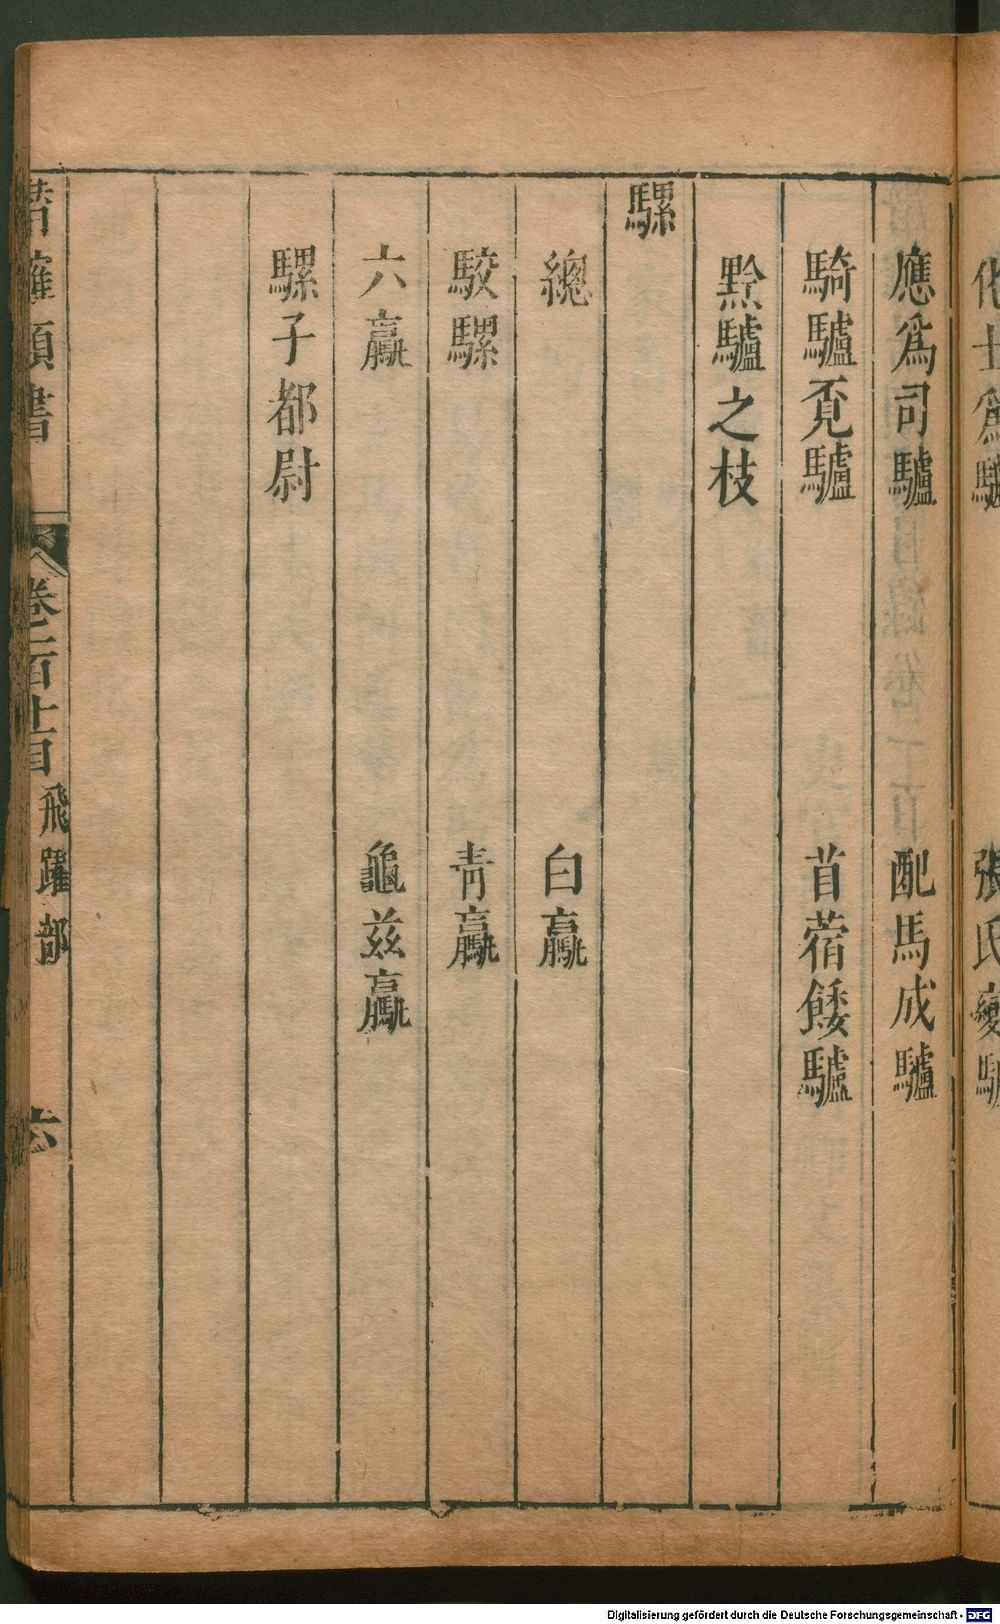 應爲司驢 配馬成驢
騎驢覓驢 苜蓿餧驢
黔驢之枝
騾
總 白驘
駮騾 青驘
六驘 龜兹驘
騾子都尉
潛確類書 卷一百十目 飛躍部 六
Digitalisierung gefördert durch die Deutsche Forschungsgemeinschaft - DFG